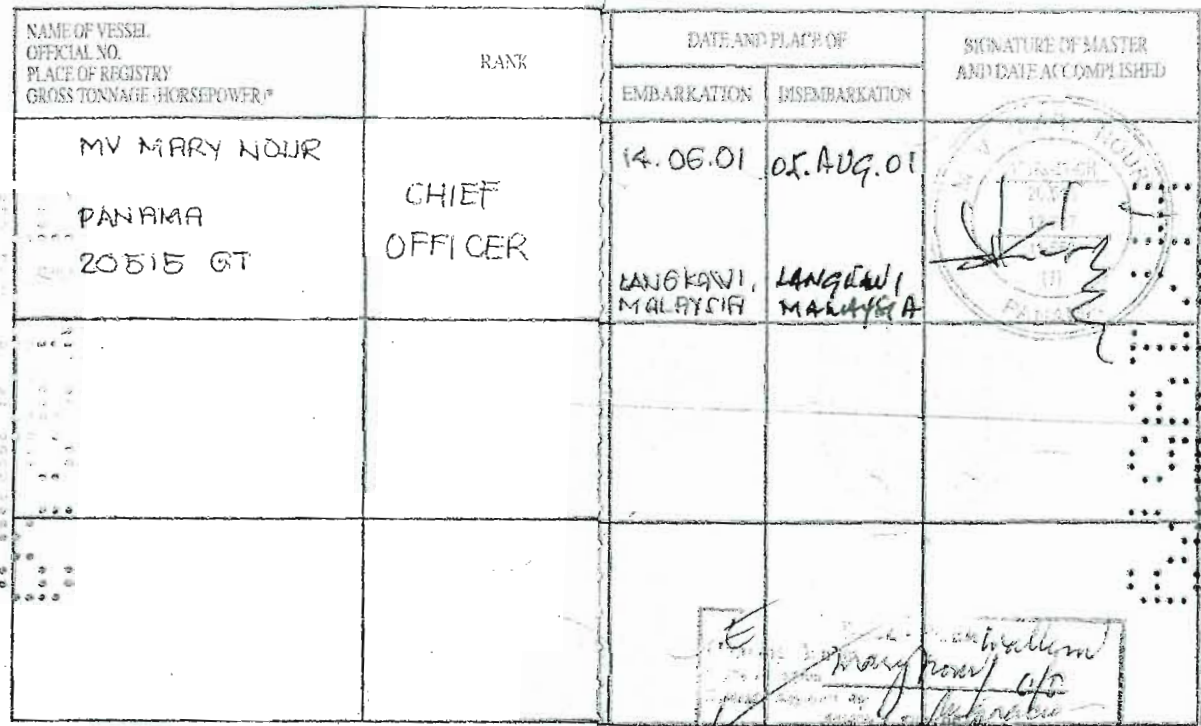 NAME OF VESSEL
OFFICIAL NO.
PLACE OF REGISTRY
GROSS TONNAGE (HORSEPOWER)*
RANK
DATE AND PLACE OF
EMBARKATION
DISEMBARKATION
SIGNATURE OF MASTER
AND DATE ACCOMPLISHED
MV MARY NOUR
PANAMA
20515 GT
CHIEF
OFFICER
14.06.01
LANGKAWI,
MALAYSIA
05.AUG.01
LANGKAWI
MALAYSIA
M V MARY NOUR
PANAMA
Mary Nour C/O